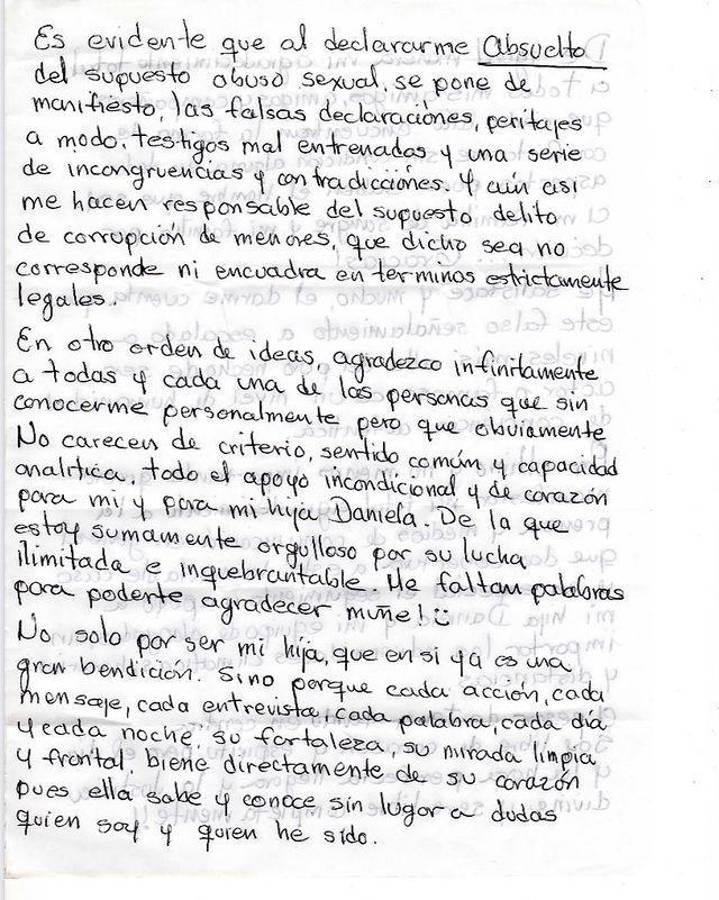 Es evidente que al declararme Absuelto
del supuesto abuso sexual, se pone de
manifiesto, las falsas declaraciones, peritajes
a modo, testigos mal entrenados y una serie
de incongruencias y contradicciones. Y aún así
me hacen responsable del supuesto delito
de corrupción de menores, que dicho sea no
corresponde ni encuadra en terminos estrictamente
legales.
En otro orden de ideas, agradezco infinitamente
a todas y cada una de las personas que sin
conocerme personalmente pero que obviamente
No carecen de criterio, sentido común y capacidad
analítica, todo el apoyo incondicional y de corazón
para mi y para mi hija Daniela. De la que
estoy sumamente orgulloso por su lucha
ilimitada e inquebrantable. Me faltan palabras
para poderte agradecer muñe! :)
No solo por ser mi hija, que en si ya es una
gran bendición. Sino porque cada acción, cada
mensaje, cada entrevista, cada palabra, cada día
y cada noche su fortaleza su mirada limpia
y frontal, biene directamente de su corazón
pues ella sabe y conoce sin lugar a dudas
quien soy y quien he sido.